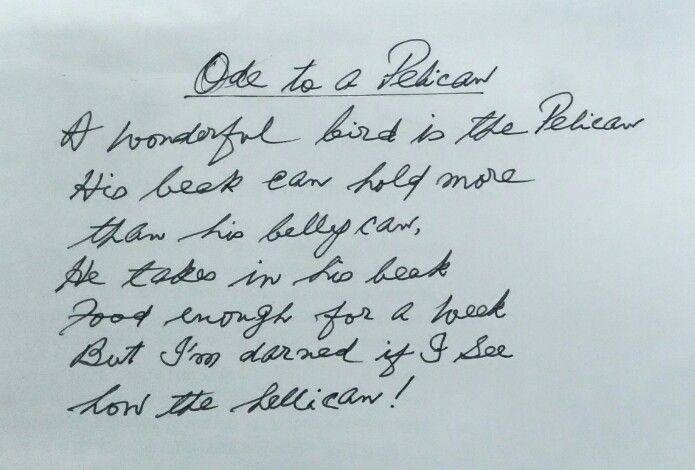 Ode to a Pelican
A wonderful bird is the Pelican
His beak can hold more
than his belly can,
He takes in his beak
Food enough for a week
But I'm darned if I see
how the hellican!